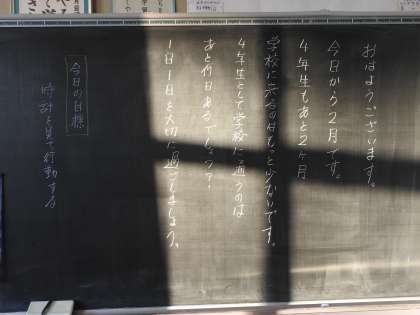 おはようございます。
今日から2月です。
4年生もあと2ヶ月
学校に来るのはもっと少ないです。
4年生として学校に通うのは
あと何日あるでしょう?
1日1日を大切に過ごしましょう。
今日の目標
時計を見て行動する